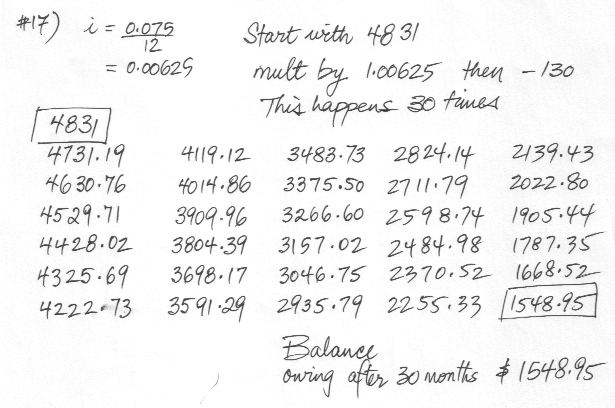 #17) i = 0.075
12
= 0.00625
Start with 4831
mult by 1.00625 then - 130
This happens 30 times
4831
4731.19 4119.12 3483.73 2824.14 2139.43
4630.76 4014.86 3375.50 2711.79 2022.80
4529.71 3909.96 3266.60 2598.74 1905.44
4428.02 3804.39 3157.02 2484.98 1787.35
4325.69 3698.17 3046.75 2370.52 1668.52
4222.73 3591.29 2935.79 2255.33 1548.95
Balance
owing after 30 months $ 1548.95